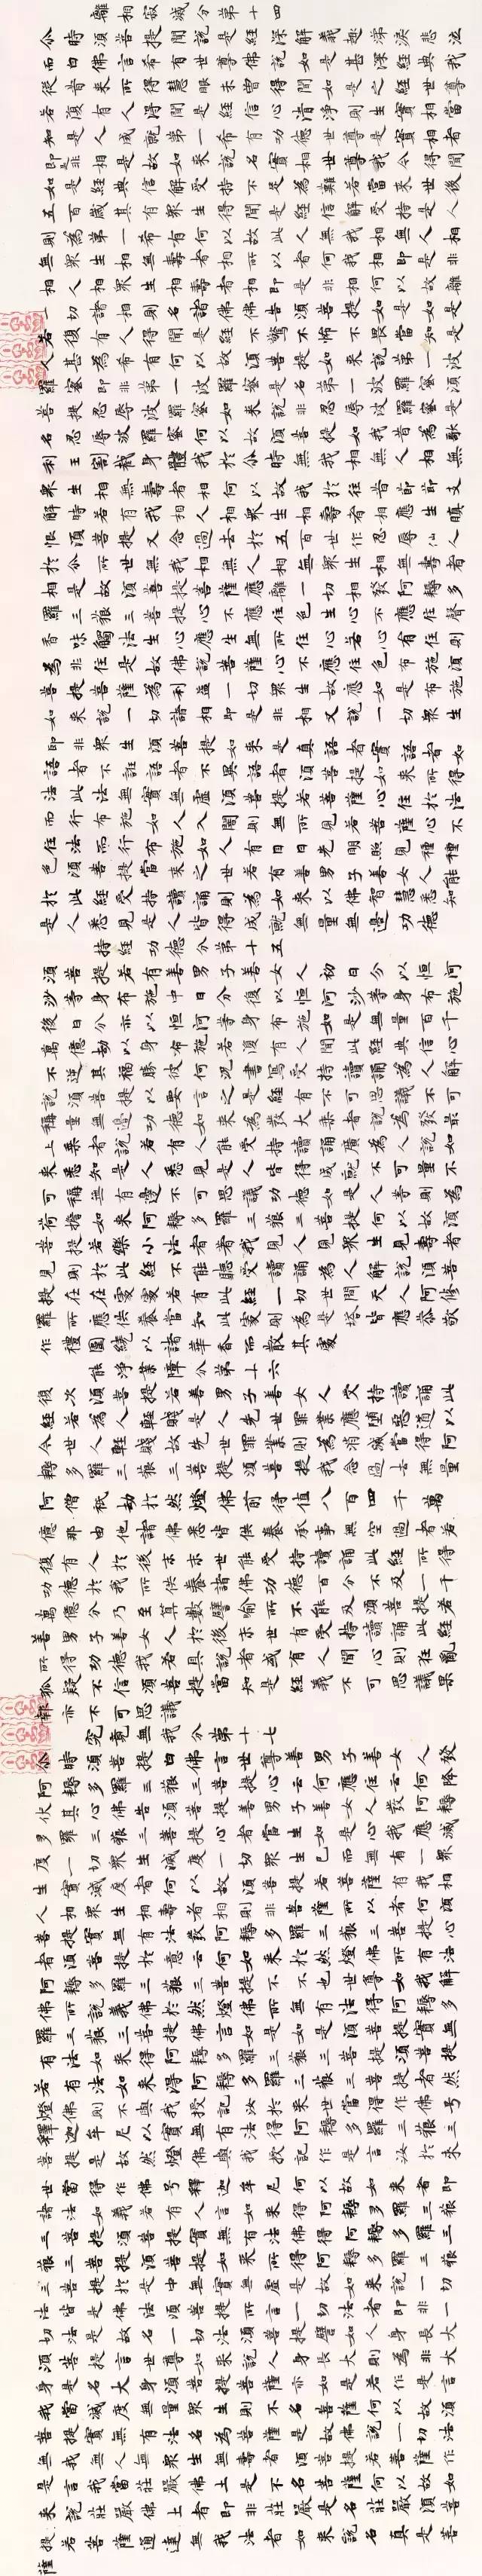 離相寂滅分第十四
尒時須菩提聞說是經深解義趣涕淚悲泣
而白佛言希有世尊佛說如是甚深經典我
從昔來所得慧眼未曾得聞如是之經世尊
若復有人得聞是經信心清淨則生實相當
知是人成就第一希有功德世尊是實相者
即是非相是故如來說名實相世尊我今得聞
如是經典信解受持不足為難若當來世後
五百歲其有眾生得聞是經信解受持是人
則為第一希有何以故此人無我相無人相
無眾生相無壽者相所以者何我相即是非
相人相眾生相壽者相即是非相何以故離
一切諸相則名諸佛佛告須菩提如是如是
若復有人得聞是經不驚不怖不畏當知是
人甚為希有何以故須菩提如來說第一波
羅蜜即非第一波羅蜜是名第一波羅蜜須
菩提忍辱波羅蜜如來說非忍辱波羅蜜是
名忍辱波羅蜜何以故須菩提如我昔為歌
利王割截身體我於尒時無我相無人相無
眾生相無壽者相何以故我於往昔節節支
解時若有我相人相眾生相壽者相應生瞋
恨須菩提又念過去於五百世作忍辱仙人
於尒所世無我相無人相無眾生相無壽者
相是故須菩提菩薩應離一切相發阿耨多
羅三藐三菩提心不應住色生心不應住聲
香味觸法生心應生無所住心若心有住則
為非住是故佛說菩薩心不應住色布施須
菩提菩薩為利益一切眾生故應如是布施
如來說一切諸相即是非相又說一切眾生
即非眾生須菩提如來是真語者實語者如
語者不誑語者不異語者須菩提如來所得
法此法無實無虛須菩提若菩薩心住於法
而行布施如人入闇則無所見若菩薩心不
住法而行布施如人有目日光明照見種種
色須菩提當來之世若有善男子善女人能
於此經受持讀誦則為如來以佛智慧悉知
是人悉見是人皆得成就無量無邊功德
持經功德分第十五
須菩提若有善男子善女人初日分以恒河
沙等身布施中日分復以恒河沙等身布施
後日分亦以恒河沙等身布施如是無量百千
萬億劫以身布施若復有人聞此經典信心
不逆其福勝彼何況書寫受持讀誦為人解
說須菩提以要言之是經有不可思議不可
稱量無邊功德如來為發大乘者說為發最
上乘者說若有人能受持讀誦廣為人說如
來悉知是人悉見是人皆得成就不可量不
可稱無有邊不可思議功德如是人等則為
荷擔如來阿耨多羅三藐三菩提何以故須
菩提若樂小法者著我見人見眾生見壽者
見則於此經不能聽受讀誦為人解說須菩
提在在處處若有此經一切世間天人阿修
羅所應供養當知此處則為是塔皆應恭敬
作禮圍繞以諸華香而散其處
能淨業障分第十六
復次須菩提若善男子善女人受持讀誦此
經若為人輕賤是人先世罪業應墮惡道以
今世人輕賤故先世罪業則為消滅當得阿
耨多羅三藐三菩提須菩提我念過去無量
阿僧祇劫於然燈佛前得值八百四千萬
億那由他諸佛悉皆供養承事無空過者若
復有人於後末世能受持讀誦此經所得
功德於我所供養諸佛功德百分不及一千
萬億分乃至算數譬喻所不能及須菩提若
善男子善女人於後末世有受持讀誦此經
所得功德我若具說者或有人聞心則狂亂
狐疑不信須菩提當知是經義不可思議果
報亦不可思議
究竟無我分第十七
尒時須菩提白佛言世尊善男子善女人發
阿耨多羅三藐三菩提心云何應住云何降
伏其心佛告須菩提善男子善女人發阿耨
多羅三藐三菩提者當生如是心我應滅
度一切眾生滅度一切眾生已而無有一眾
生實滅度者何以故須菩提若菩薩有我相
人相眾生相壽者相則非菩薩所以者何須
菩提實無有法發阿耨多羅三藐三菩提者
須菩提於意云何如來於然燈佛所有法得
阿耨多羅三藐三菩提不不也世尊如我解
佛所說義佛於然燈佛所無有法得阿耨多
羅三藐三菩提佛言如是如是須菩提實無
有法如來得阿耨多羅三藐三菩提須菩提
若有法如來得阿耨多羅三藐三菩提者然
燈佛則不與我授記汝於來世當得作佛號
釋迦牟尼以實無有法得阿耨多羅三藐三
菩提是故然燈佛與我授記作是言汝於來
世當得作佛號釋迦牟尼何以故如來者即
諸法如義若有人言如來得阿耨多羅三藐
三菩提須菩提實無有法佛得阿耨多羅三
藐三菩提須菩提如來所得阿耨多羅三藐
三菩提於是中無實無虛是故如來說一切
法皆是佛法須菩提所言一切法者即非一
切法是故名一切法須菩提譬如人身長大
須菩提言世尊如來說人身長大則為非大
身是名大身須菩提菩薩亦如是若作是言
我當滅度無量眾生則不名菩薩何以故須
菩提實無有法名為菩薩是故佛說一切法
無我無人無眾生無壽者須菩提若菩薩作
是言我當莊嚴佛土是不名菩薩何以故如
來說莊嚴佛土者即非莊嚴是名莊嚴須菩
提若菩薩通達無我法者如來說名真是菩
薩